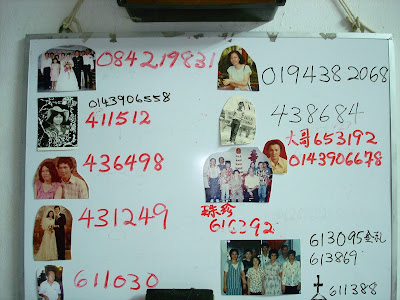 084219831
0194382068
0143906558
411512
438684
大哥653192
436498
0143906678
431249
珠珍
616392
613095金孔
613869
611030
611388